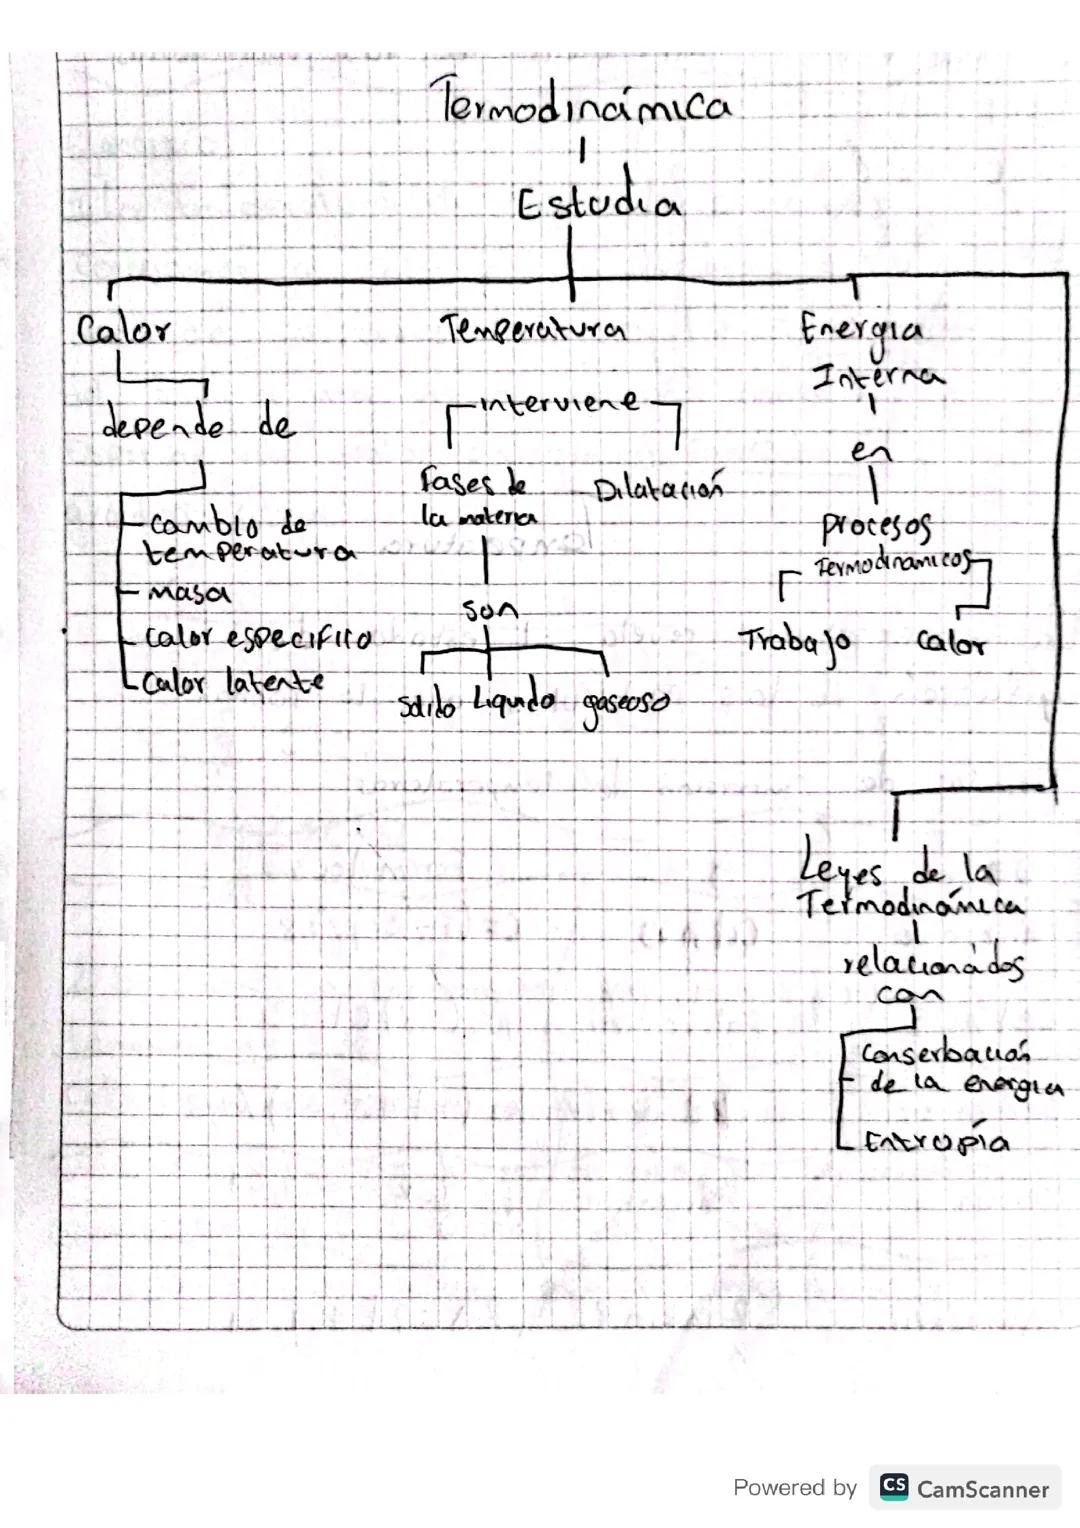 Termodinámica
Estudia
Calor
depende de
cambio de
temperatura
masa
calor especifico
calor latente
Temperatura
interviene
Fases de
la materia
son
Solido Liquido gaseoso
Dilatación
Energia
Interna
en
procesos
Termodinamicos
Trabajo
calor
Leyes de la
Termodinámica
relacionados
con
Conserbación
de la energia
Entropía
Powered by CS CamScanner